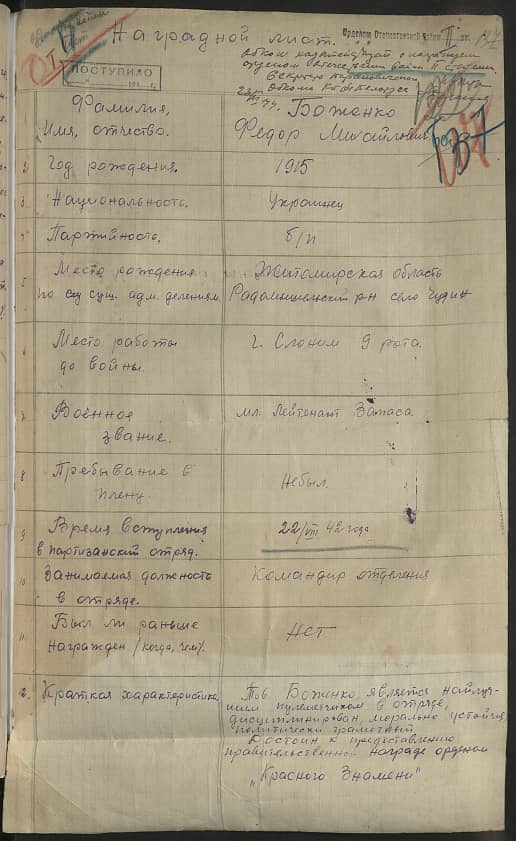 Наградной лист.
Орденом Отечественной войны II ст.
137
ПОСТУПИЛО
Обком партии
орденом Отечественной войны II степени.
Секретарь Барановичского
обкома КП(б) Белоруссии
Фамилия, Боженко
Имя, отчество. Федор Михайлович
2 Год рождения. 1915
3 Национальность. Украинец
4 Партийность. б/п
5 Место рождения Житомирская область
по сущ. адм. делениям. Радомышльский р-н село Чудин
6 Место работы г. Слоним 9 рота.
до войны.
7 Военное мл. Лейтенант Запаса.
звание.
8 Пребывание в Небыл.
плену.
9 Время вступления 22/VIII 42 года
в партизанский отряд.
10 Занимаемая должность Командир отделения
в отряде.
11 Был ли раньше Нет
награжден /когда, чем/.
12. Краткая характеристика. Тов. Боженко, является найлуч-
шим пулеметчиком в отряде,
дисциплинирован, морально устойчив,
политически грамотный
Достоин к предоставлению
правительственной награде орденом
„Красного Знамени"